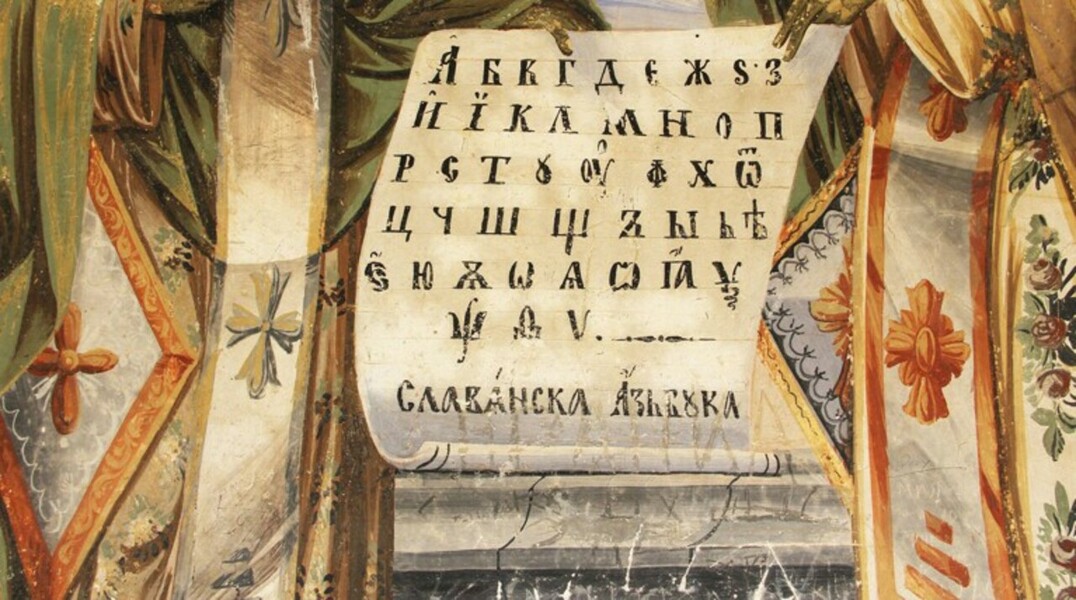 А҆ Б В Г Д Є Ж Ѕ З
И҆ Ї К Л М Н О П
Р С Т Ꙋ Оу҆ Ф Х Ѿ
Ц Ч Ш Щ Ъ Ы Ь Ѣ
Є҆ Ю Ѫ Ѡ Ѧ Ѻ Ꙗ҆ Ѯ
Ѱ Ѳ Ѵ.
Слава́нска А҆́зьбꙋка